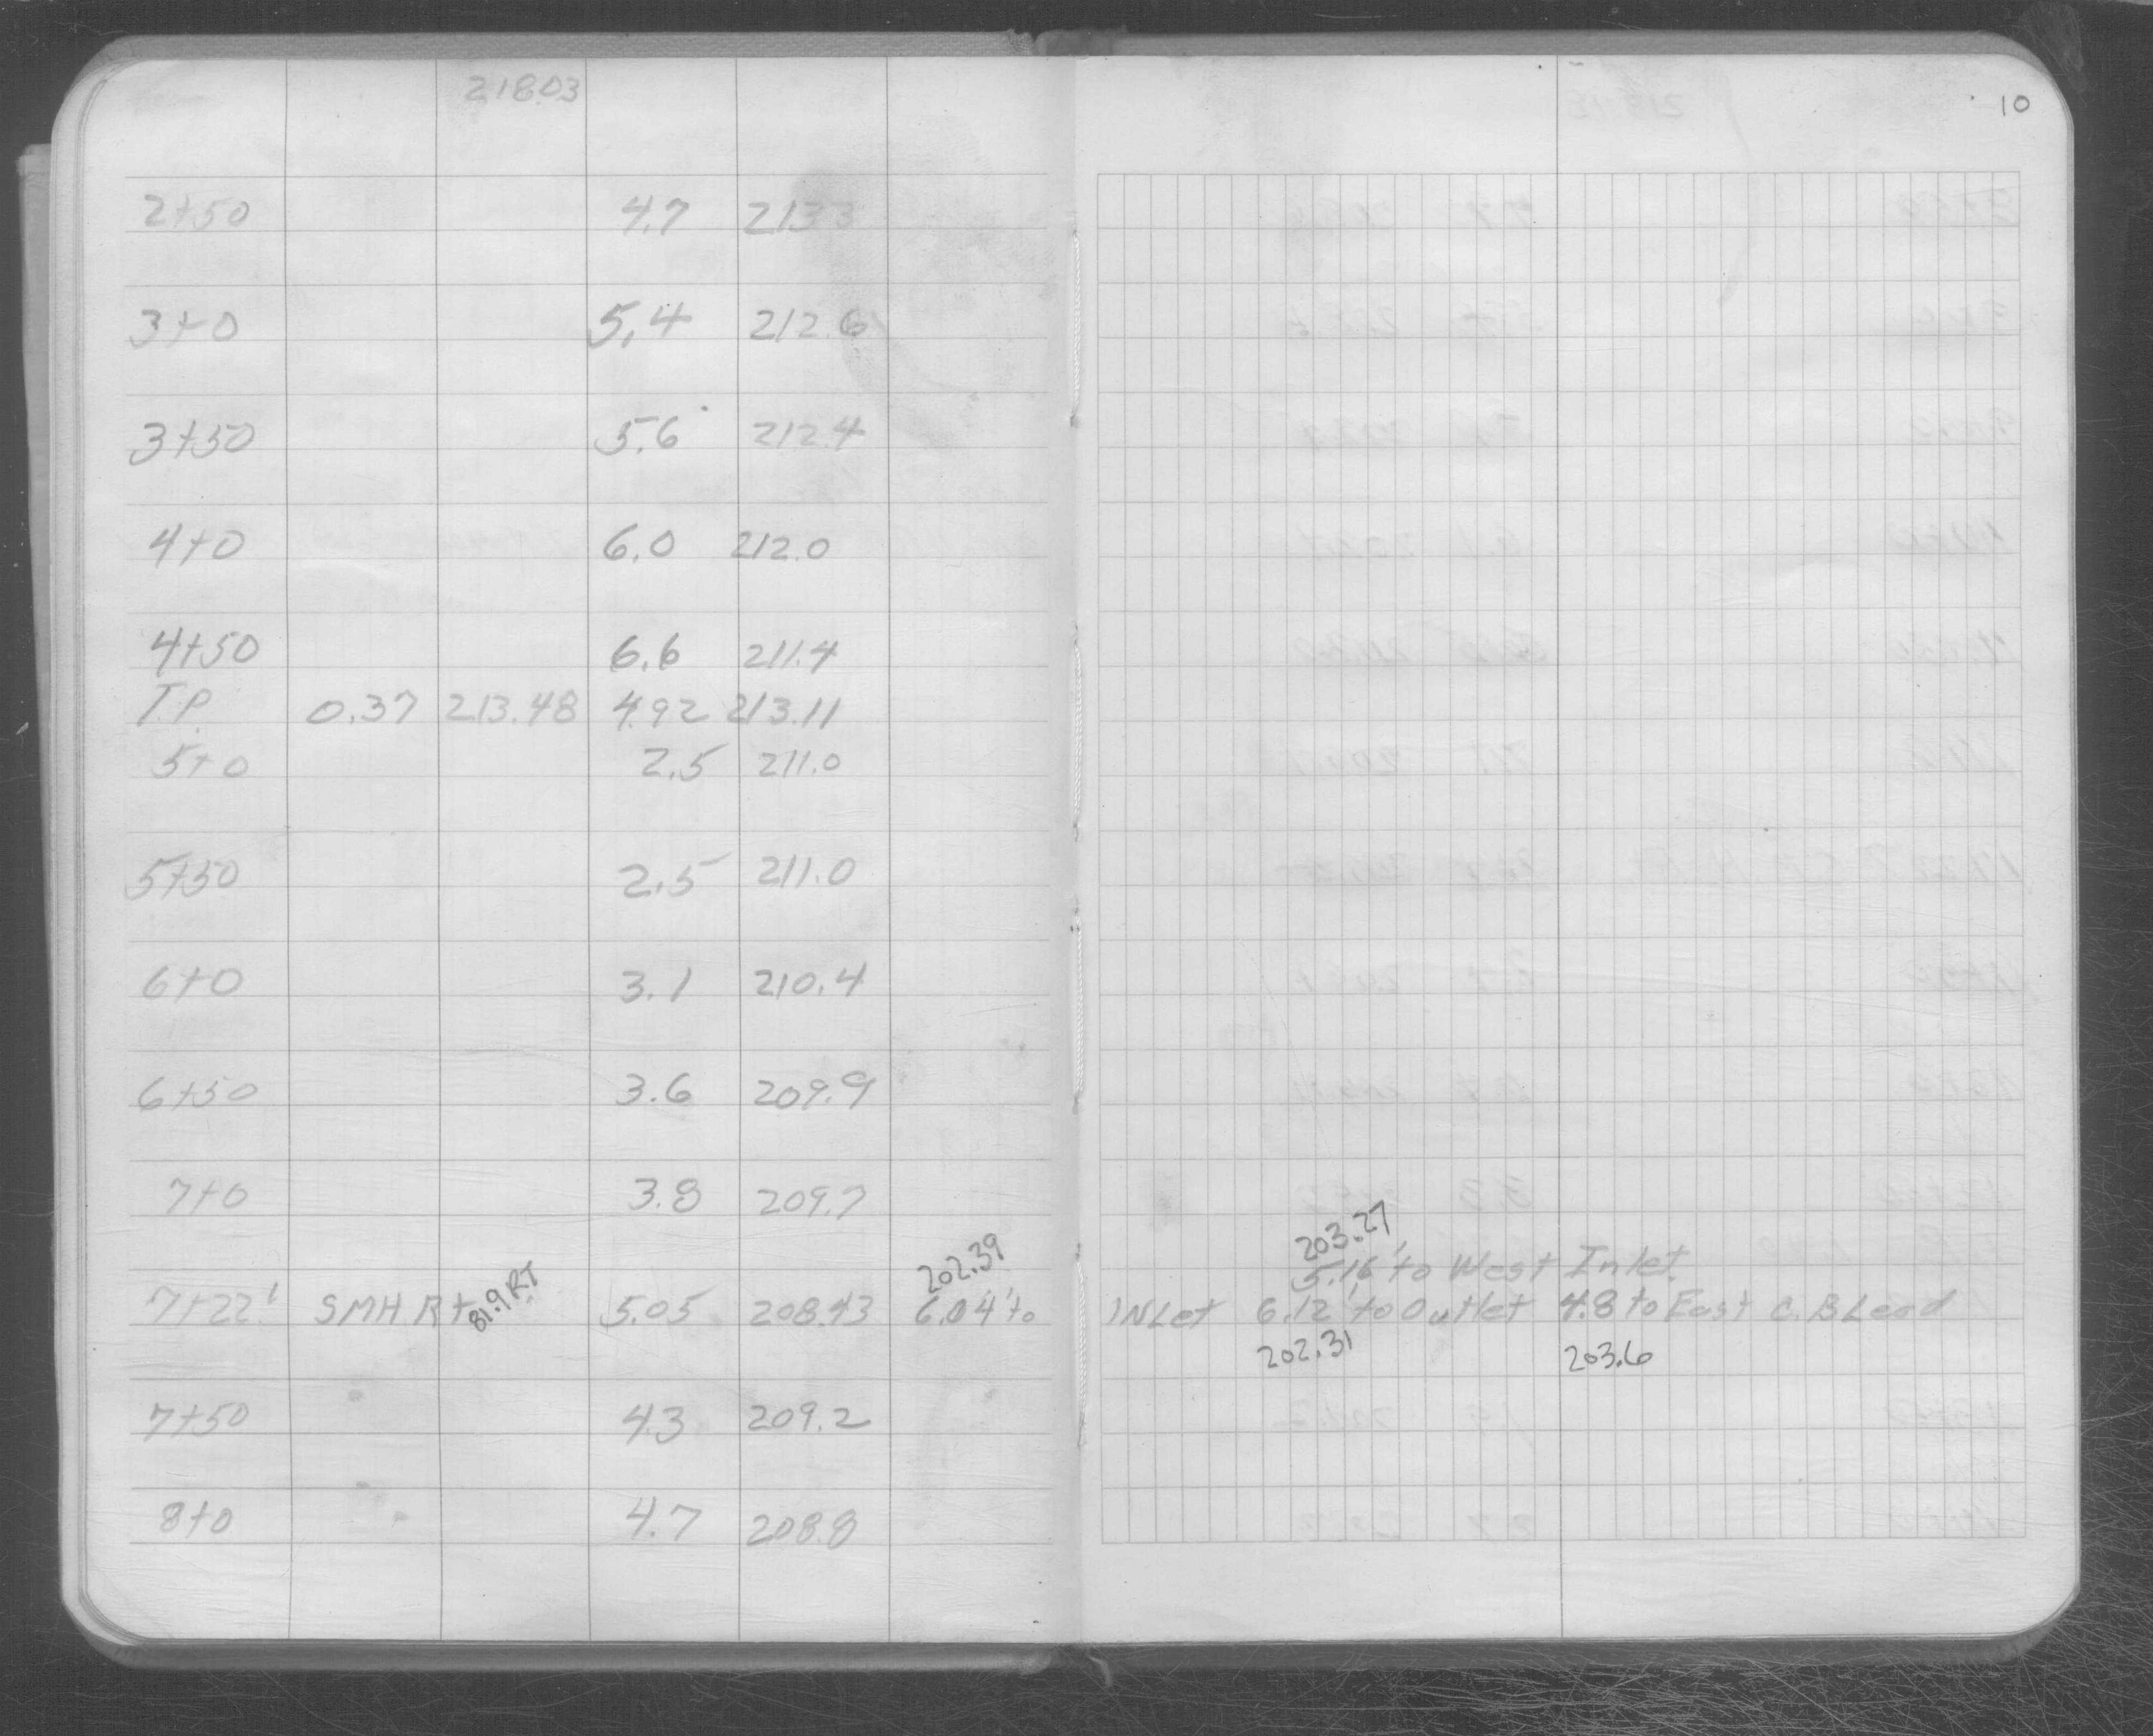 218.03
10
2+50 4.7 213.3
3+0 5.4 212.6
3+50 5.6 212.4
4+0 6.0 212.0
4+50 6.6 211.4
T.P. 0.37 213.48 4.92 213.11
5+0 2.5 211.0
5+50 2.5 211.0
6+0 3.1 210.4
6+50 3.6 209.9
7+0 3.8 209.7
202.39 203.27
5.16' to West Inlet
7+22' SMH Rt 81.9 RT 5.05 208.43 6.04' to INLet 6.12' to Outlet 4.8 to East C.B Lead
202.31 203.6
7+50 4.3 209.2
8+0 4.7 208.8